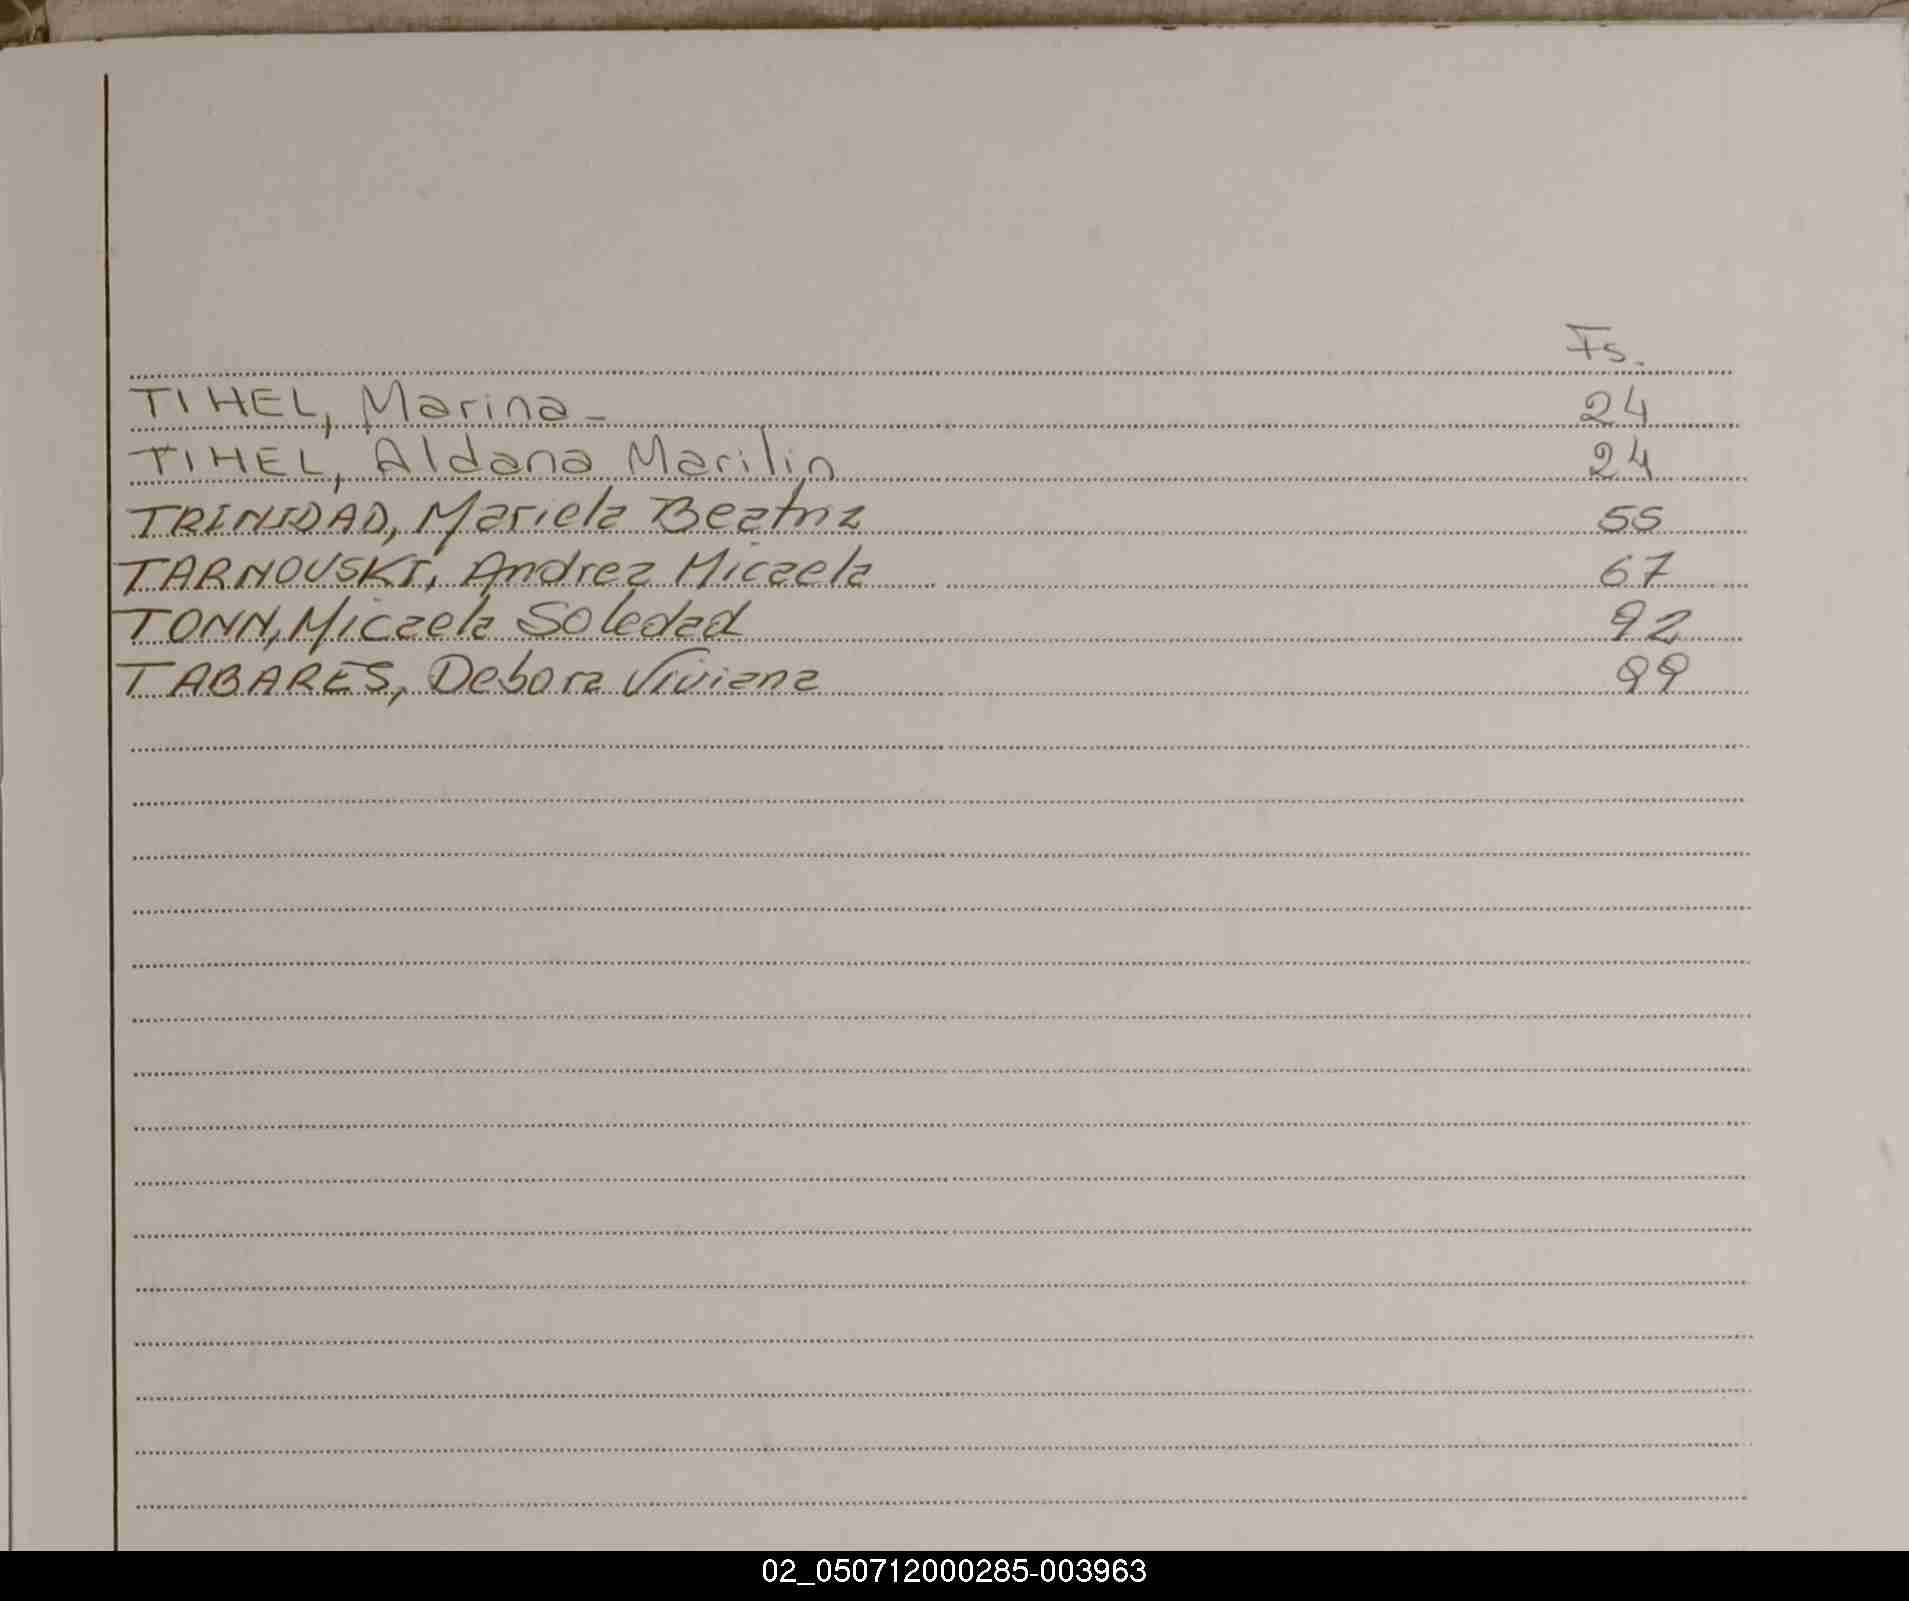 Fs.
TIHEL, Marina - 24
TIHEL, Aldana Marilin 24
TRINIDAD, Mariela Beatriz 55
TARNOVSKI, Andrea Micaela 67
TONN, Micaela Soledad 92
TABARES, Debora Viviana 99
02_050712000285-003963